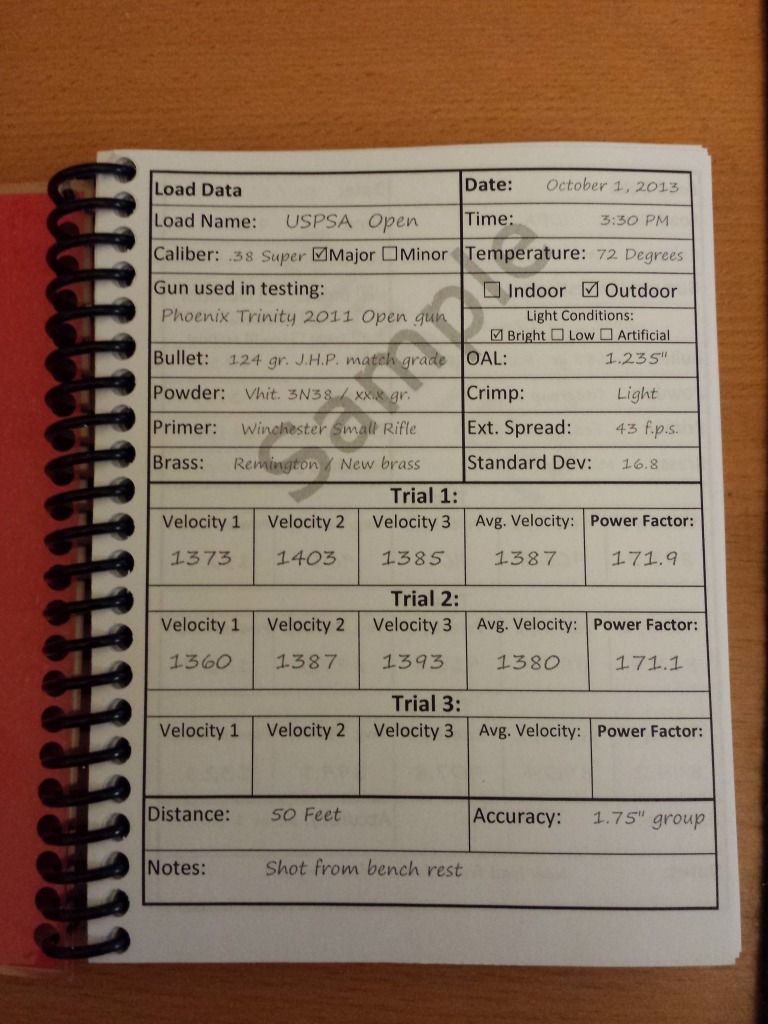 Load Data
Date: October 1, 2013
Load Name: USPSA Open
Time: 3:30 PM
Caliber: .38 Super ☑Major ☐Minor
Temperature: 72 Degrees
Gun used in testing:
Phoenix Trinity 2011 Open gun
☐ Indoor ☑ Outdoor
Light Conditions:
☑ Bright ☐ Low ☐ Artificial
Bullet: 124 gr. J.H.P. match grade
OAL: 1.235"
Powder: Vhit. 3N38 / xx.x gr.
Crimp: Light
Primer: Winchester Small Rifle
Ext. Spread: 43 f.p.s.
Brass: Remington / New brass
Standard Dev: 16.8
Sample
Trial 1:
Velocity 1 Velocity 2 Velocity 3 Avg. Velocity: Power Factor:
1373 1403 1385 1387 171.9
Trial 2:
Velocity 1 Velocity 2 Velocity 3 Avg. Velocity: Power Factor:
1360 1387 1393 1380 171.1
Trial 3:
Velocity 1 Velocity 2 Velocity 3 Avg. Velocity: Power Factor:
Distance: 50 Feet
Accuracy: 1.75" group
Notes: Shot from bench rest